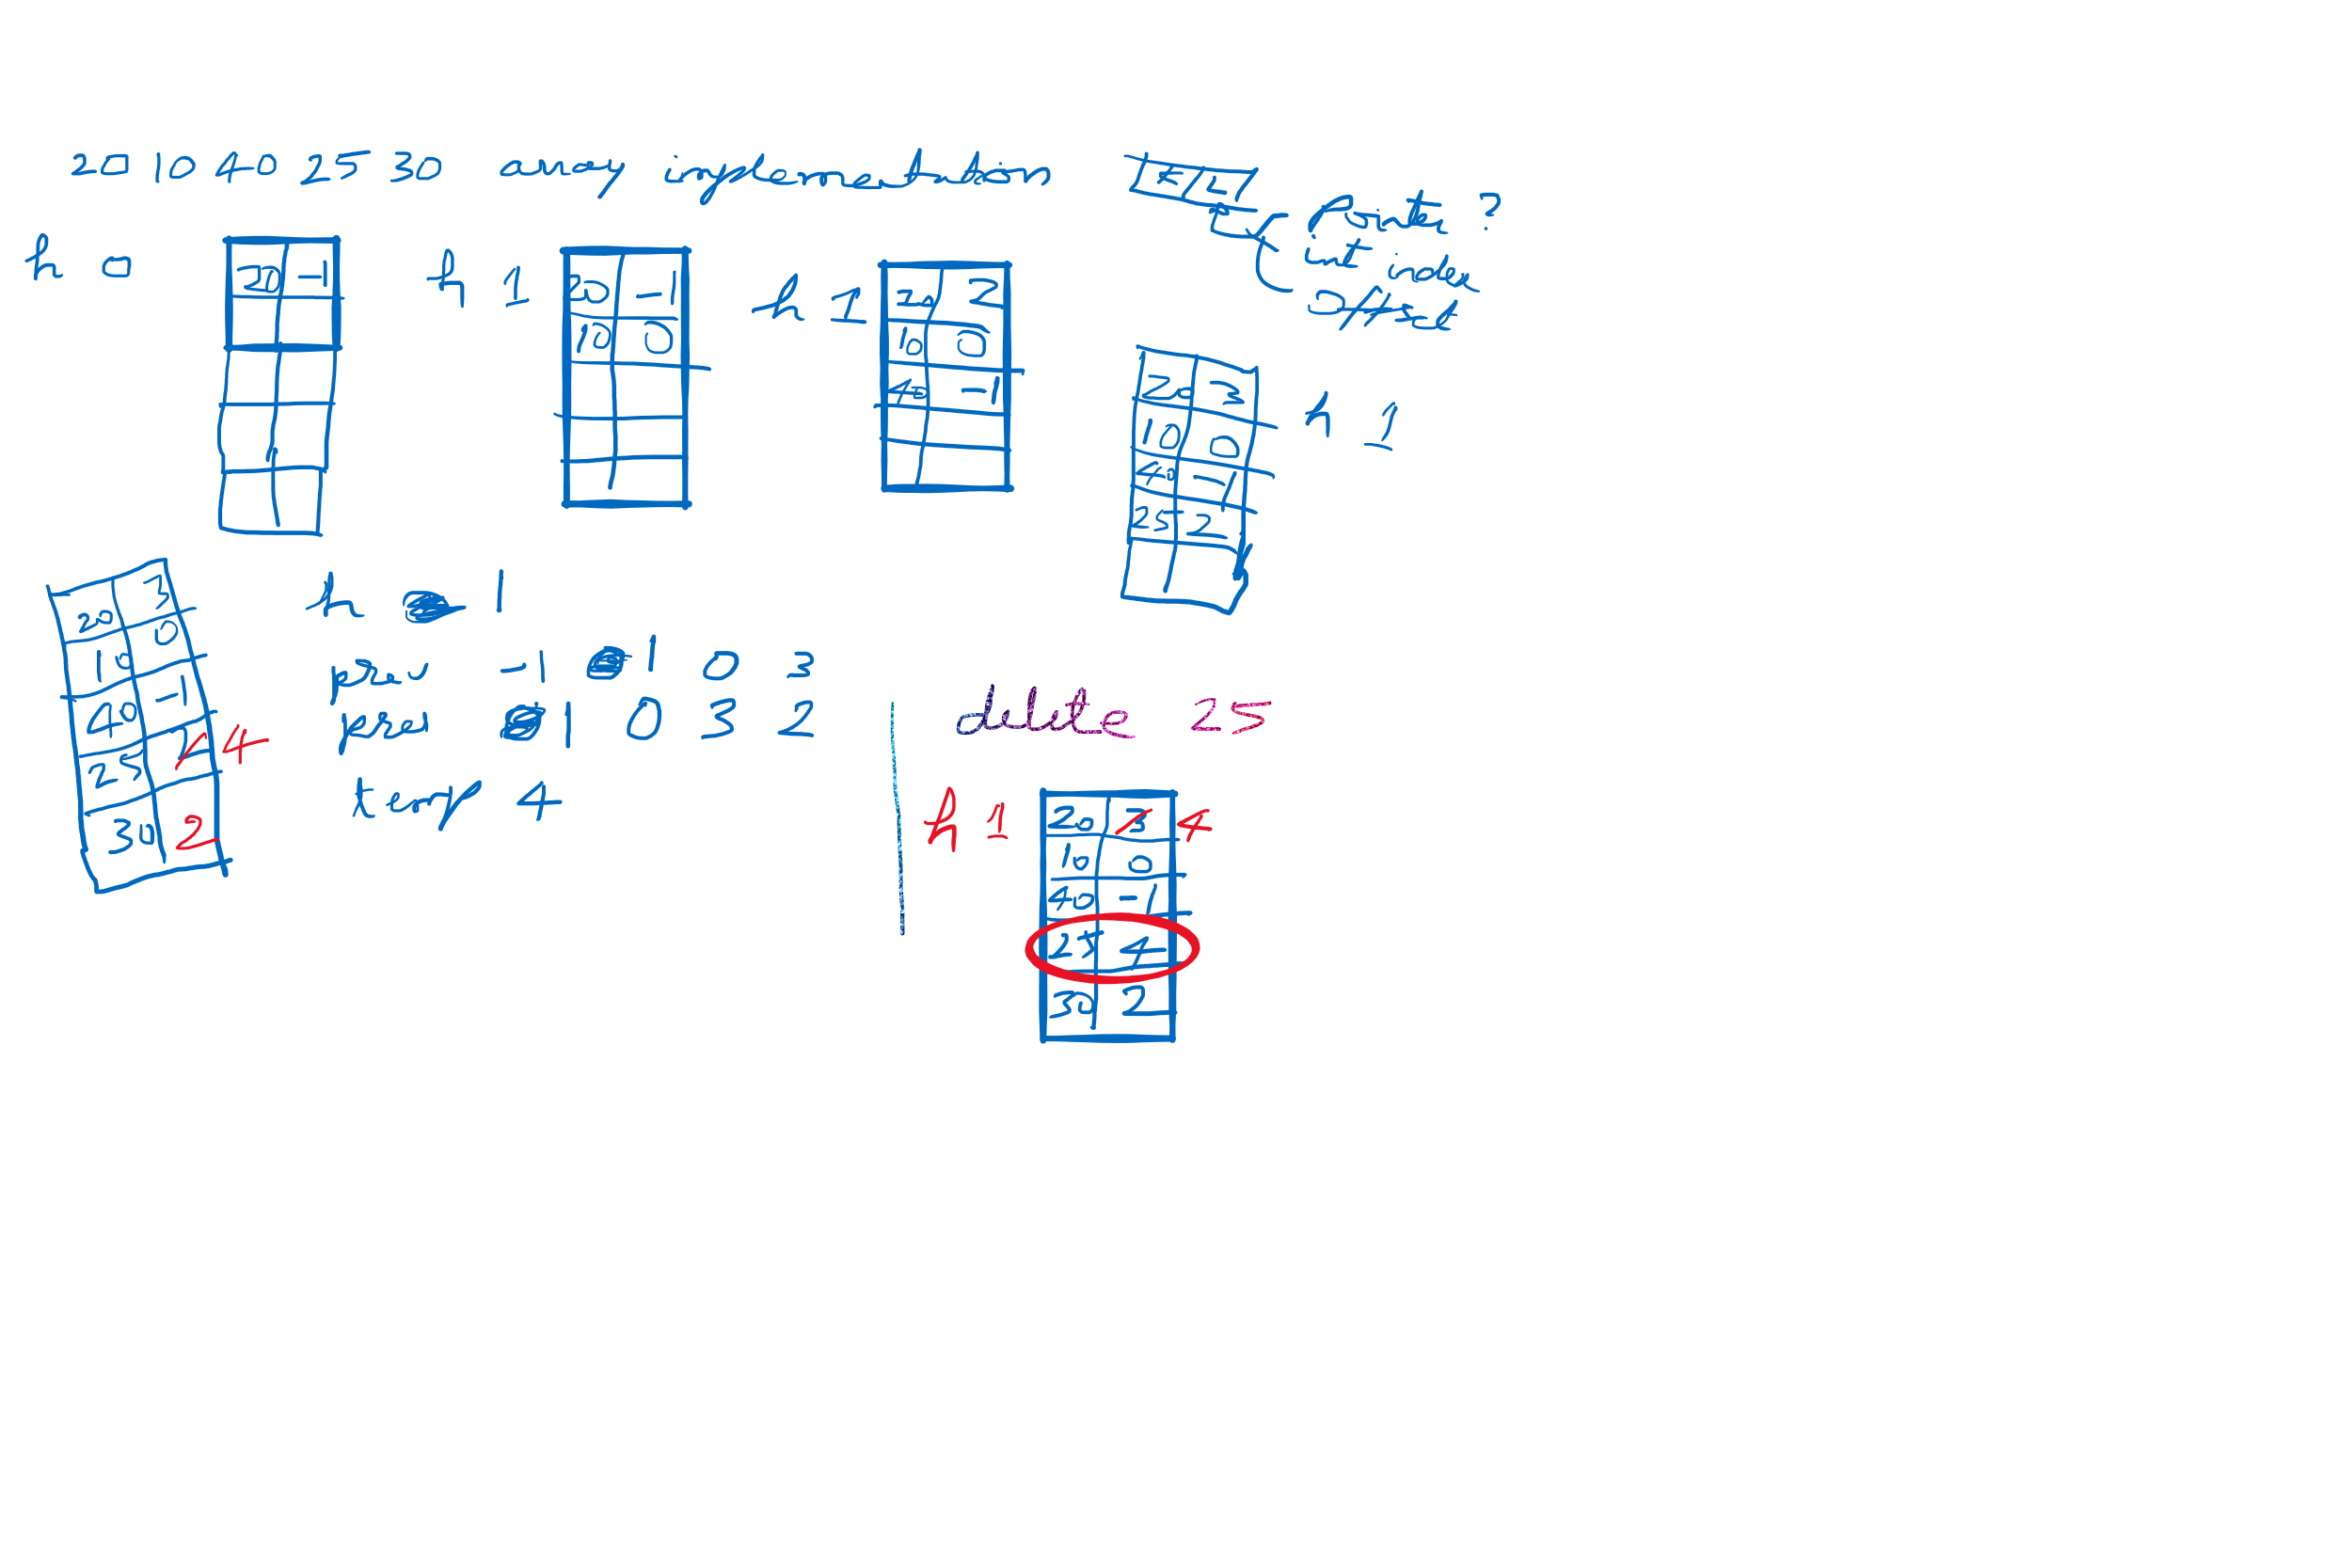 20 10 40 25 30 array implementation
K L
Point ?
int index
h 0
20 -1
h 1
20 -1
10 0
h 1
20 2
10 0
40 -1
h 1
20 3
10 0
40 -1
25 2
20 3
10 0
40 -1
25 2 4
30 2
h 1
prev -1 1 0 3
1 0 3 2
temp 4
delete 25
h 1
20 3 4
10 0
40 -1
25 4
30 2